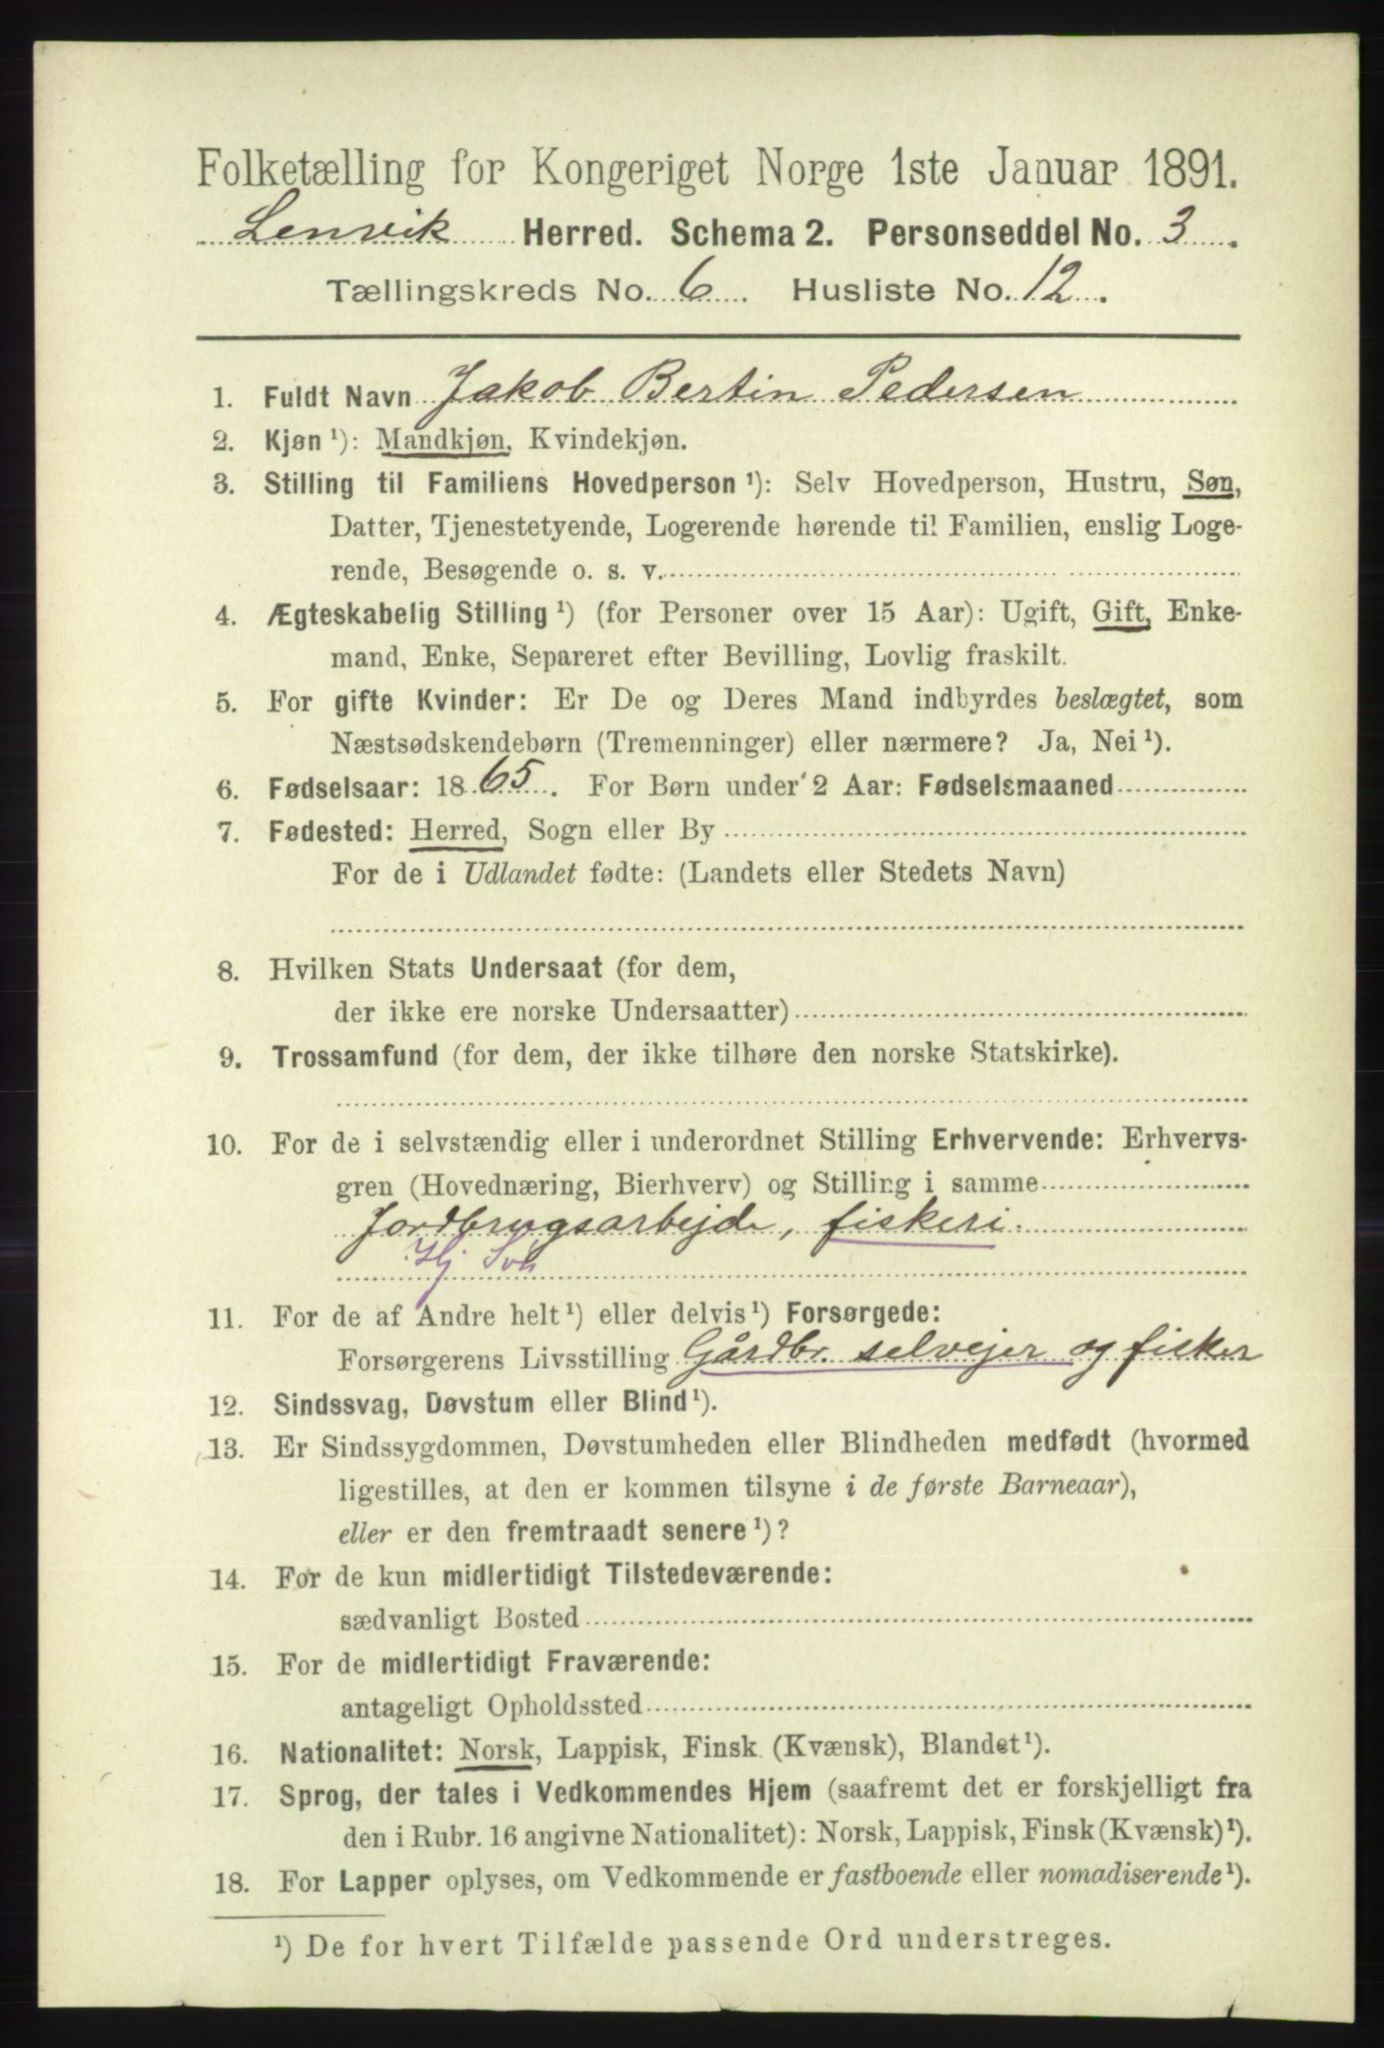 Folketælling for Kongeriget Norge 1ste Januar 1891.
Lenvik Herred. Schema 2. Personseddel No. 3.
Tællingskreds No. 6. Husliste No. 12.
1. Fuldt Navn Jakob Bertin Pedersen
2. Kjøn ¹): Mandkjøn, Kvindekjøn.
3. Stilling til Familiens Hovedperson ¹): Selv Hovedperson, Hustru, Søn,
Datter, Tjenestetyende, Logerende hørende til Familien, enslig Loge-
rende, Besøgende o. s. v.
4. Ægteskabelig Stilling ¹) (for Personer over 15 Aar): Ugift, Gift, Enke-
mand, Enke, Separeret efter Bevilling, Lovlig fraskilt.
5. For gifte Kvinder: Er De og Deres Mand indbyrdes beslægtet, som
Næstsødskendebørn (Tremenninger) eller nærmere? Ja, Nei ¹).
6. Fødselsaar: 1865. For Børn under 2 Aar: Fødselsmaaned
7. Fødested: Herred, Sogn eller By
For de i Udlandet fødte: (Landets eller Stedets Navn)
8. Hvilken Stats Undersaat (for dem,
der ikke ere norske Undersaatter)
9. Trossamfund (for dem, der ikke tilhøre den norske Statskirke).
10. For de i selvstændig eller i underordnet Stilling Erhvervende: Erhvervs-
gren (Hovednæring, Bierhverv) og Stilling i samme
Jordbrugsarbejde, fiskeri.
Hj Søn
11. For de af Andre helt ¹) eller delvis ¹) Forsørgede:
Forsørgerens Livsstilling Gårdbr. selvejer og fisker
12. Sindssvag, Døvstum eller Blind ¹).
13. Er Sindssygdommen, Døvstumheden eller Blindheden medfødt (hvormed
ligestilles, at den er kommen tilsyne i de første Barneaar),
eller er den fremtraadt senere ¹)?
14. For de kun midlertidigt Tilstedeværende:
sædvanligt Bosted
15. For de midlertidigt Fraværende:
antageligt Opholdssted
16. Nationalitet: Norsk, Lappisk, Finsk (Kvænsk), Blandet ¹).
17. Sprog, der tales i Vedkommendes Hjem (saafremt det er forskjelligt fra
den i Rubr. 16 angivne Nationalitet): Norsk, Lappisk, Finsk (Kvænsk) ¹).
18. For Lapper oplyses, om Vedkommende er fastboende eller nomadiserende ¹).
¹) De for hvert Tilfælde passende Ord understreges.